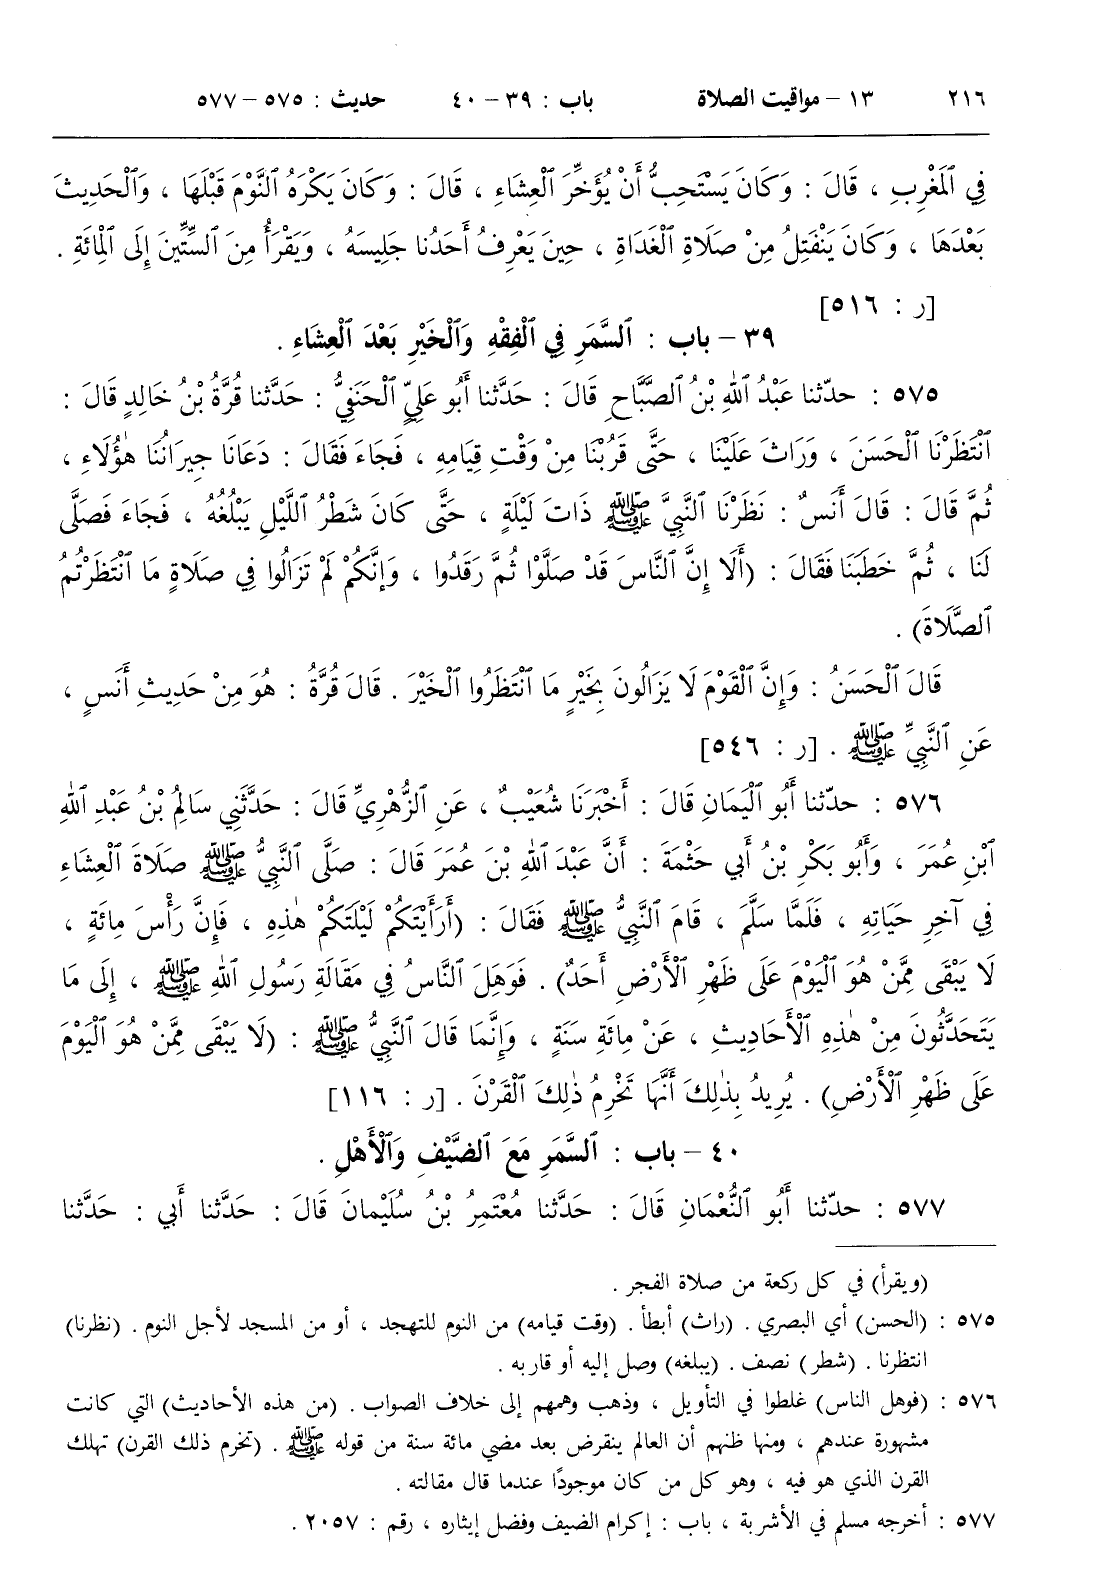 ٢١٦ ١٣ – مواقيت الصلاة باب : ٣٩ – ٤٠ حديث : ٥٧٥ – ٥٧٧
فِي ٱلْمَغْرِبِ ، قَالَ : وَكَانَ يَسْتَحِبُّ أَنْ يُؤَخِّرَ ٱلْعِشَاءِ ، قَالَ : وَكَانَ يَكْرَهُ ٱلنَّوْمَ قَبْلَهَا ، وَٱلْحَدِيثَ
بَعْدَهَا ، وَكَانَ يَنْفَتِلُ مِنْ صَلَاةِ ٱلْغَدَاةِ ، حِينَ يَعْرِفُ أَحَدُنا جَلِيسَهُ ، وَيَقْرَأُ مِنَ ٱلسِّتِّينَ إِلَى ٱلْمِائَةِ .
[ر : ٥١٦]
٣٩ – باب : ٱلسَّمَرِ فِي ٱلْفِقْهِ وَٱلْخَيْرِ بَعْدَ ٱلْعِشَاءِ .
٥٧٥ : حدّثنا عَبْدُ ٱللهِ بْنُ ٱلصَّبَّاحِ قَالَ : حَدَّثَنا أَبُو عَلِيٍّ ٱلْحَنَفِيُّ : حَدَّثَنا قُرَّةُ بْنُ خَالِدٍ قَالَ :
ٱنْتَظَرْنَا ٱلْحَسَنَ ، وَرَاثَ عَلَيْنَا ، حَتَّى قَرُبْنَا مِنْ وَقْتِ قِيَامِهِ ، فَجَاءَ فَقَالَ : دَعَانَا جِيرَانُنَا هٰؤُلَاءِ ،
ثُمَّ قَالَ : قَالَ أَنَسٌ : نَظَرْنَا ٱلنَّبِيَّ ﷺ ذَاتَ لَيْلَةٍ ، حَتَّى كَانَ شَطْرُ ٱللَّيْلِ يَبْلُغُهُ ، فَجَاءَ فَصَلَّى
لَنَا ، ثُمَّ خَطَبَنَا فَقَالَ : (أَلَا إِنَّ ٱلنَّاسَ قَدْ صَلَّوْا ثُمَّ رَقَدُوا ، وَإِنَّكُمْ لَمْ تَزَالُوا فِي صَلَاةٍ مَا ٱنْتَظَرْتُمُ
ٱلصَّلَاةَ) .
قَالَ ٱلْحَسَنُ : وَإِنَّ ٱلْقَوْمَ لَا يَزَالُونَ بِخَيْرٍ مَا ٱنْتَظَرُوا ٱلْخَيْرَ . قَالَ قُرَّةُ : هُوَ مِنْ حَدِيثِ أَنَسٍ ،
عَنِ ٱلنَّبِيِّ ﷺ . [ر : ٥٤٦]
٥٧٦ : حدّثنا أَبُو ٱلْيَمَانِ قَالَ : أَخْبَرَنَا شُعَيْبٌ ، عَنِ ٱلزُّهْرِيِّ قَالَ : حَدَّثَنِي سَالِمُ بْنُ عَبْدِ ٱللهِ
ٱبْنِ عُمَرَ ، وَأَبُو بَكْرِ بْنُ أَبِي حَثْمَةَ : أَنَّ عَبْدَ ٱللهِ بْنَ عُمَرَ قَالَ : صَلَّى ٱلنَّبِيُّ ﷺ صَلَاةَ ٱلْعِشَاءِ
فِي آخِرِ حَيَاتِهِ ، فَلَمَّا سَلَّمَ ، قَامَ ٱلنَّبِيُّ ﷺ فَقَالَ : (أَرَأَيْتَكُمْ لَيْلَتَكُمْ هٰذِهِ ، فَإِنَّ رَأْسَ مِائَةٍ ،
لَا يَبْقَى مِمَّنْ هُوَ ٱلْيَوْمَ عَلَى ظَهْرِ ٱلْأَرْضِ أَحَدٌ) . فَوَهِلَ ٱلنَّاسُ فِي مَقَالَةِ رَسُولِ ٱللهِ ﷺ ، إِلَى مَا
يَتَحَدَّثُونَ مِنْ هٰذِهِ ٱلْأَحَادِيثِ ، عَنْ مِائَةِ سَنَةٍ ، وَإِنَّمَا قَالَ ٱلنَّبِيُّ ﷺ : (لَا يَبْقَى مِمَّنْ هُوَ ٱلْيَوْمَ
عَلَى ظَهْرِ ٱلْأَرْضِ) . يُرِيدُ بِذٰلِكَ أَنَّهَا تَخْرِمُ ذٰلِكَ ٱلْقَرْنَ . [ر : ١١٦]
٤٠ – باب : ٱلسَّمَرِ مَعَ ٱلضَّيْفِ وَٱلْأَهْلِ .
٥٧٧ : حدّثنا أَبُو ٱلنُّعْمَانِ قَالَ : حَدَّثَنا مُعْتَمِرُ بْنُ سُلَيْمانَ قَالَ : حَدَّثَنا أَبِي : حَدَّثَنا
(ويقرأ) في كل ركعة من صلاة الفجر .
٥٧٥ : (الحسن) أي البصري . (راث) أبطأ . (وقت قيامه) من النوم للتهجد ، أو من المسجد لأجل النوم . (نظرنا)
انتظرنا . (شطر) نصف . (يبلغه) وصل إليه أو قاربه .
٥٧٦ : (فوهل الناس) غلطوا في التأويل ، وذهب وهمهم إلى خلاف الصواب . (من هذه الأحاديث) التي كانت
مشهورة عندهم ، ومنها ظنهم أن العالم ينقرض بعد مضي مائة سنة من قوله ﷺ . (تخرم ذلك القرن) تهلك
القرن الذي هو فيه ، وهو كل من كان موجودًا عندما قال مقالته .
٥٧٧ : أخرجه مسلم في الأشربة ، باب : إكرام الضيف وفضل إيثاره ، رقم : ٢٠٥٧ .